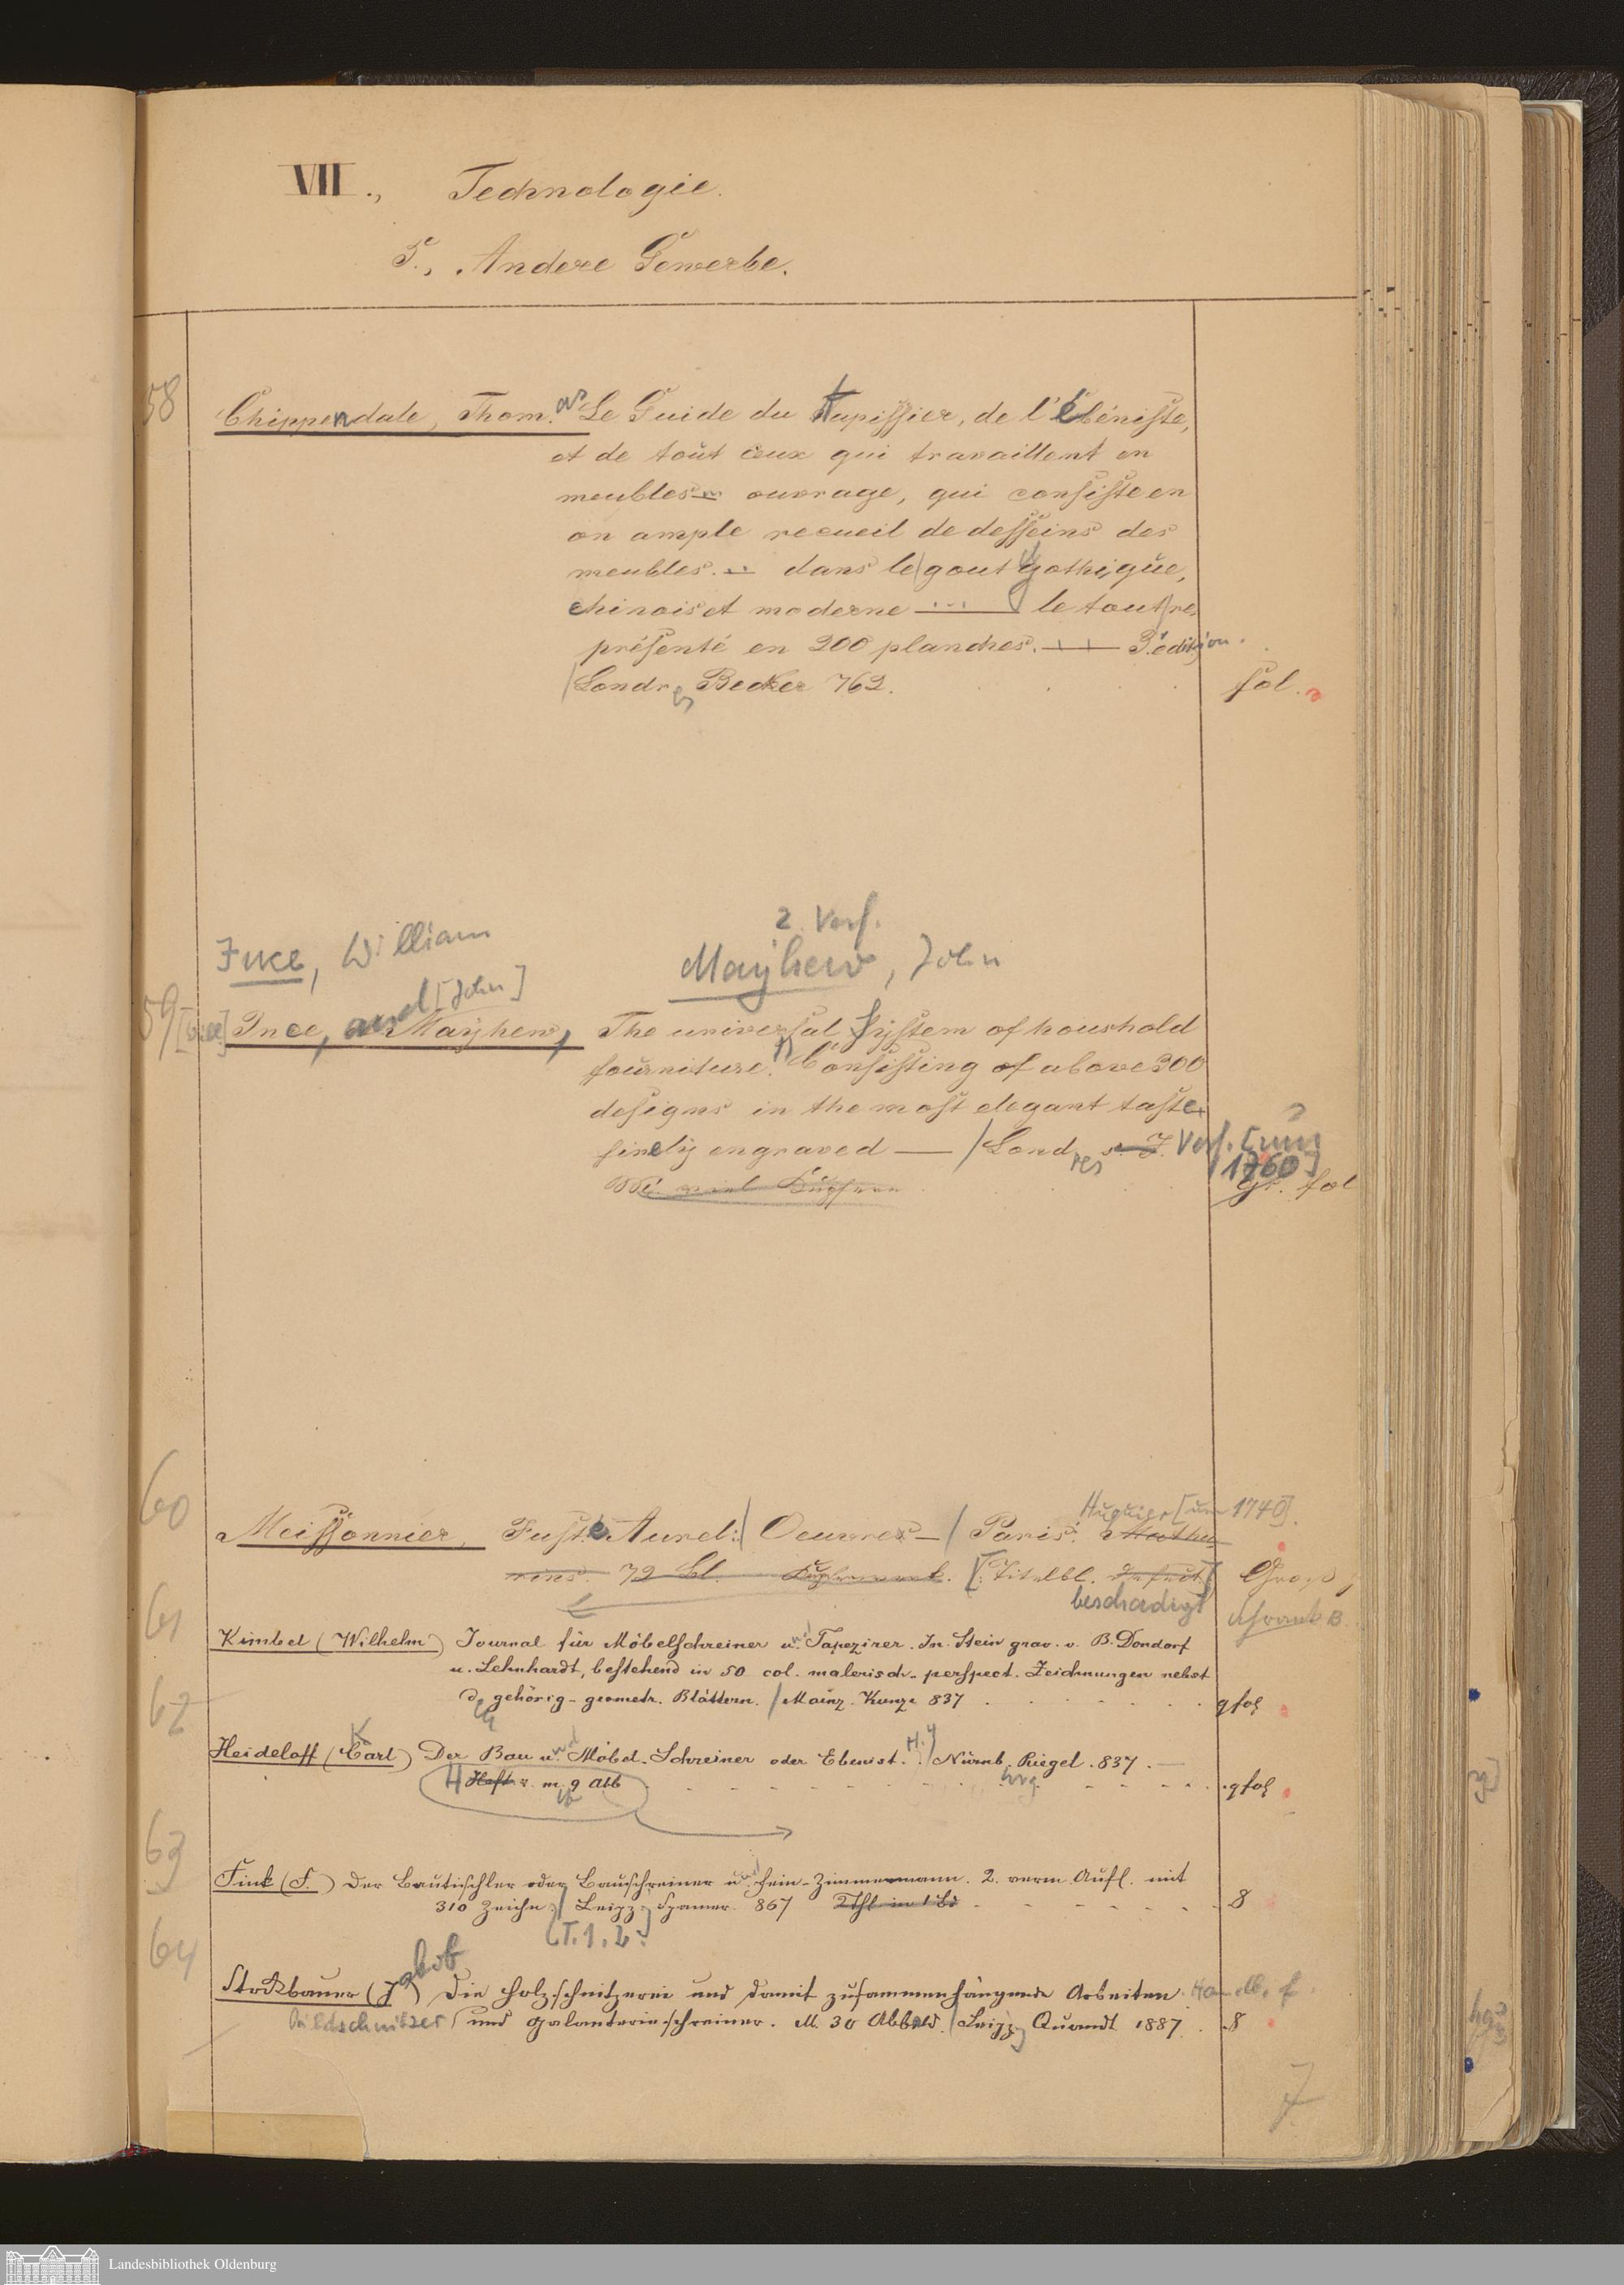 VII., Technologie.
5., Andere Gewerbe.
58
Chippendale, Thom.as Le Guide du tapissier, de l'ébéniste,
et de tout ceux qui travaillent en
meubles ... ouvrage, qui consiste en
un ample recueil de desseins des
meubles. ... dans le gout gothique,
chinois et moderne ... le tout re-
présenté en 200 planches. — 3. édition.
Londres, Becker 762. fol.
Ince, William
2. Verf.
Mayhew, John
59 Ince, and Mayhew, [John] The universal System of houshold
fourniture. Consisting of above 300
designs in the most elegant taste
finely engraved — / Londres s. J. Verf. [um
1760]
gr. fol
60
Huquier [um 1740].
Meissonnier, Just. Aurel: / Oeuvres — / Paris.
72 Bl. Kupferwerk. [Titelbl. defect.] Gross,
beschädigt
Schrank B.
61
Kimbel (Wilhelm) Journal für Möbelschreiner und Tapezirer. In Stein grav. v. B. Dondorf
u. Lehnhardt, bestehend in 50 col. malerisch-perspect. Zeichnungen nebst
d. gehörig-geometr. Blättern. / Mainz. Kunze 837 qfol
62
Heideloff (Carl) K Der Bau und Möbel-Schreiner oder Ebenist. H. 4 / Nürnb. Riegel. 837. —
Heft m. 9 Abb qfol
63
Fink (F.) Der Bautischler oder Bauschreiner und Fein-Zimmermann. 2. verm. Aufl. mit
310 Zeichn. / Leipz. Spamer. 867 2 Thl in 1 Bd 8
(T. 1. 2.)
64
Stockbauer (Jakob) Die Holzschnitzerei und damit zusammenhängende Arbeiten. Handb. f.
Bildschnitzer und Galanterieschreiner. M. 30 Abbild. / Leipz. Quandt 1887. 8
7
Landesbibliothek Oldenburg